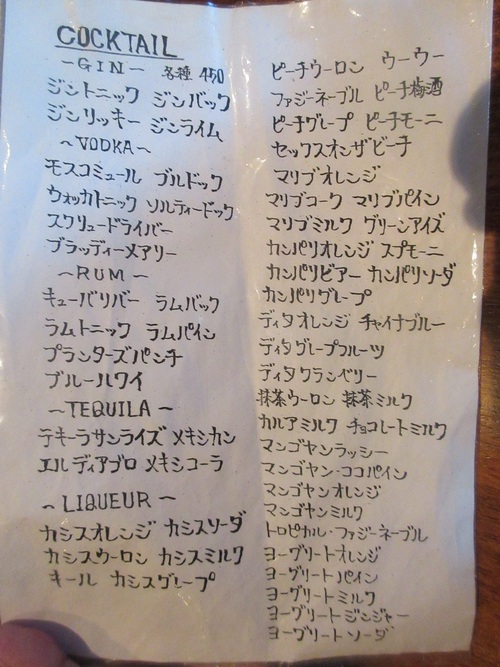 COCKTAIL
～GIN～ 各種 450
ジントニック ジンバック
ジンリッキー ジンライム
～VODKA～
モスコミュール ブルドック
ウォッカトニック ソルティードック
スクリュードライバー
ブラッディーメアリー
～RUM～
キューバリバー ラムバック
ラムトニック ラムパイン
プランターズパンチ
ブルーハワイ
～TEQUILA～
テキーラサンライズ メキシカン
エルディアブロ メキシコーラ
～LIQUEUR～
カシスオレンジ カシスソーダ
カシスウーロン カシスミルク
キール カシスグレープ
ピーチウーロン ウーウー
ファジーネーブル ピーチ梅酒
ピーチグレープ ピーチモーニ
セックスオンザビーチ
マリブオレンジ
マリブコーク マリブパイン
マリブミルク グリーンアイズ
カンパリオレンジ スプモーニ
カンパリビアー カンパリソーダ
カンパリグレープ
ディタオレンジ チャイナブルー
ディタグレープフルーツ
ディタクランベリー
抹茶ウーロン 抹茶ミルク
カルアミルク チョコレートミルク
マンゴヤンラッシー
マンゴヤン・ココパイン
マンゴヤンオレンジ
マンゴヤンミルク
トロピカル・ファジーネーブル
ヨーグリートオレンジ
ヨーグリートパイン
ヨーグリートミルク
ヨーグリートジンジャー
ヨーグリートソーダ